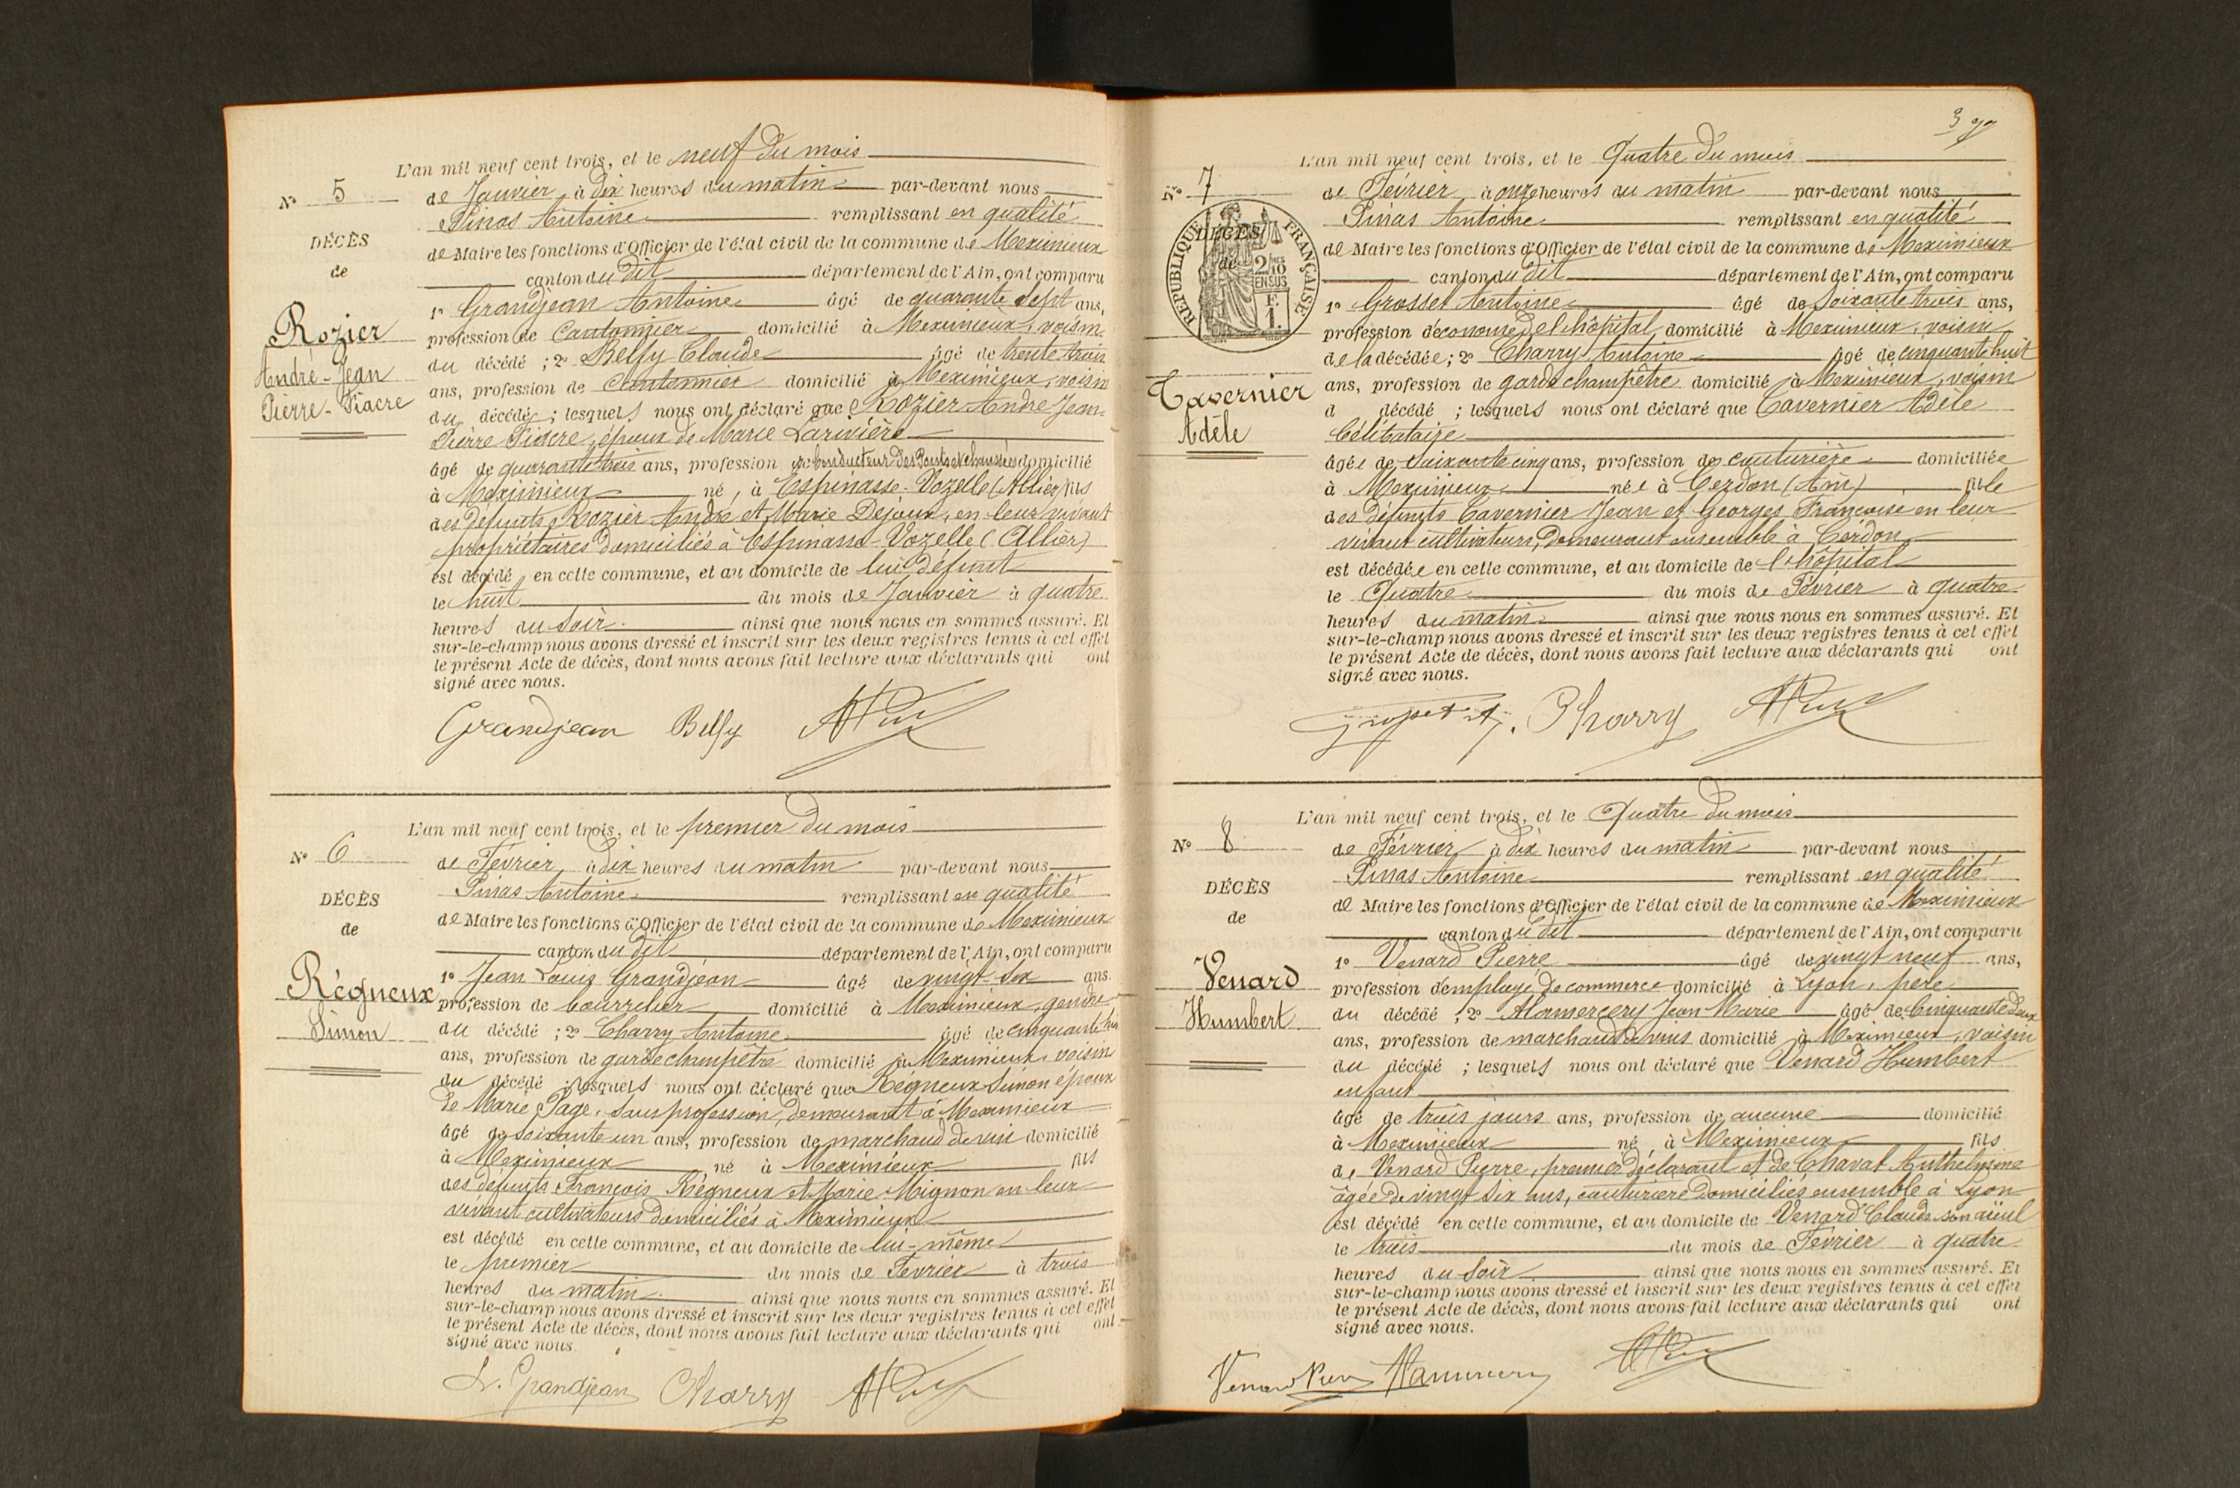 L'an mil neuf cent trois, et le neuf du mois
N° 5
de Janvier à dix heures du matin par-devant nous
Pinas Antoine remplissant en qualité
DÉCÈS
de
de Maire les fonctions d'Officier de l'état civil de la commune de Meximieux
canton du dit département de l'Ain, ont comparu
1° Grandjean Antoine âgé de quarante sept ans,
Rozier
André-Jean
Pierre-Fiacre
profession de Cantonnier domicilié à Meximieux, voisin
du décédé ; 2° Belfy Claude âgé de trente trois
ans, profession de Cantonnier domicilié à Meximieux, voisin
du décédé ; lesquels nous ont déclaré que Rozier André Jean
Pierre Fiacre, époux de Marie Larivière
âgé de quarante trois ans, profession de Conducteur des Ponts et chaussées domicilié
à Meximieux né, à Espinasse-Vozelle (Allier) fils
des défunts Rozier André et Marie Dejoux, en leur vivant
propriétaires domiciliés à Espinasse-Vozelle (Allier)
est décédé en cette commune, et au domicile de lui défunt
le huit du mois de Janvier à quatre
heures du soir ainsi que nous nous en sommes assuré. Et
sur-le-champ nous avons dressé et inscrit sur les deux registres tenus à cet effet
le présent Acte de décès, dont nous avons fait lecture aux déclarants qui ont
signé avec nous.
Grandjean Belfy
L'an mil neuf cent trois, et le premier du mois
N° 6
de Février à dix heures du matin par-devant nous
Pinas Antoine remplissant en qualité
DÉCÈS
de
de Maire les fonctions d'Officier de l'état civil de la commune de Meximieux
canton du dit département de l'Ain, ont comparu
1° Jean Louis Grandjean âgé de vingt-six ans.
Régneux
Simon
profession de bourrelier domicilié à Meximieux, gendre
du décédé ; 2° Charry Antoine âgé de cinquante huit
ans, profession de garde champêtre domicilié à Meximieux voisin
du décédé lesquels nous ont déclaré que Régneux Simon époux
de Marie Page, sans profession, demeurant à Meximieux
âgé de soixante un ans, profession de marchand de vin domicilié
à Meximieux né à Meximieux fils
des défunts François Régneux et Marie Mignon en leur
vivant cultivateurs domiciliés à Meximieux
est décédé en cette commune, et au domicile de lui-même
le premier du mois de Février à trois
heures du matin ainsi que nous nous en sommes assuré. Et
sur-le-champ nous avons dressé et inscrit sur les deux registres tenus à cet effet
le présent Acte de décès, dont nous avons fait lecture aux déclarants qui ont
signé avec nous
L. Grandjean Charry
3
L'an mil neuf cent trois, et le Quatre du mois
N° 7
de Février à onze heures du matin par-devant nous
Pinas Antoine remplissant en qualité
DÉCÈS
de
RÉPUBLIQUE FRANÇAISE
2/10 EN SUS
F. 1.
de Maire les fonctions d'Officier de l'état civil de la commune de Meximieux
canton du dit département de l'Ain, ont comparu
1° Grosset Antoine âgé de soixante trois ans,
profession d'économe de l'hôpital domicilié à Meximieux, voisin
de la décédée ; 2° Charry Antoine âgé de cinquante huit
Tavernier
Adèle
ans, profession de garde champêtre domicilié à Meximieux, voisin
d décédé ; lesquels nous ont déclaré que Tavernier Adèle
Célibataire
âgée de soixante cinq ans, profession de couturière domiciliée
à Meximieux née à Cerdon (Ain) fille
des défunts Tavernier Jean et Georges Françoise en leur
vivant cultivateurs, demeurant ensemble à Cerdon
est décédée en cette commune, et au domicile de l'hôpital
le Quatre du mois de Février à quatre
heures du matin ainsi que nous nous en sommes assuré. Et
sur-le-champ nous avons dressé et inscrit sur les deux registres tenus à cet effet
le présent Acte de décès, dont nous avons fait lecture aux déclarants qui ont
signé avec nous.
Charry
L'an mil neuf cent trois, et le Quatre du mois
N° 8
de Février à dix heures du matin par-devant nous
Pinas Antoine remplissant en qualité
DÉCÈS
de
de Maire les fonctions d'Officier de l'état civil de la commune de Meximieux
canton du dit département de l'Ain, ont comparu
1° Venard Pierre âgé de vingt neuf ans,
Venard
Humbert
profession d'employé de commerce domicilié à Lyon, père
du décédé ; 2° Jean Marie âgé de Cinquante deux
ans, profession de marchand de vins domicilié à Meximieux, voisin
du décédé ; lesquels nous ont déclaré que Venard Humbert
enfant
âgé de trois jours ans, profession de aucune domicilié
à Meximieux né, à Meximieux fils
de Venard Pierre, premier déclarant et de Chavat Anthelmine
âgée de vingt six ans, couturière domiciliés ensemble à Lyon
est décédé en cette commune, et au domicile de Venard Claude son aïeul
le trois du mois de Février à quatre
heures du soir ainsi que nous nous en sommes assuré. Et
sur-le-champ nous avons dressé et inscrit sur les deux registres tenus à cet effet
le présent Acte de décès, dont nous avons fait lecture aux déclarants qui ont
signé avec nous.
Venard